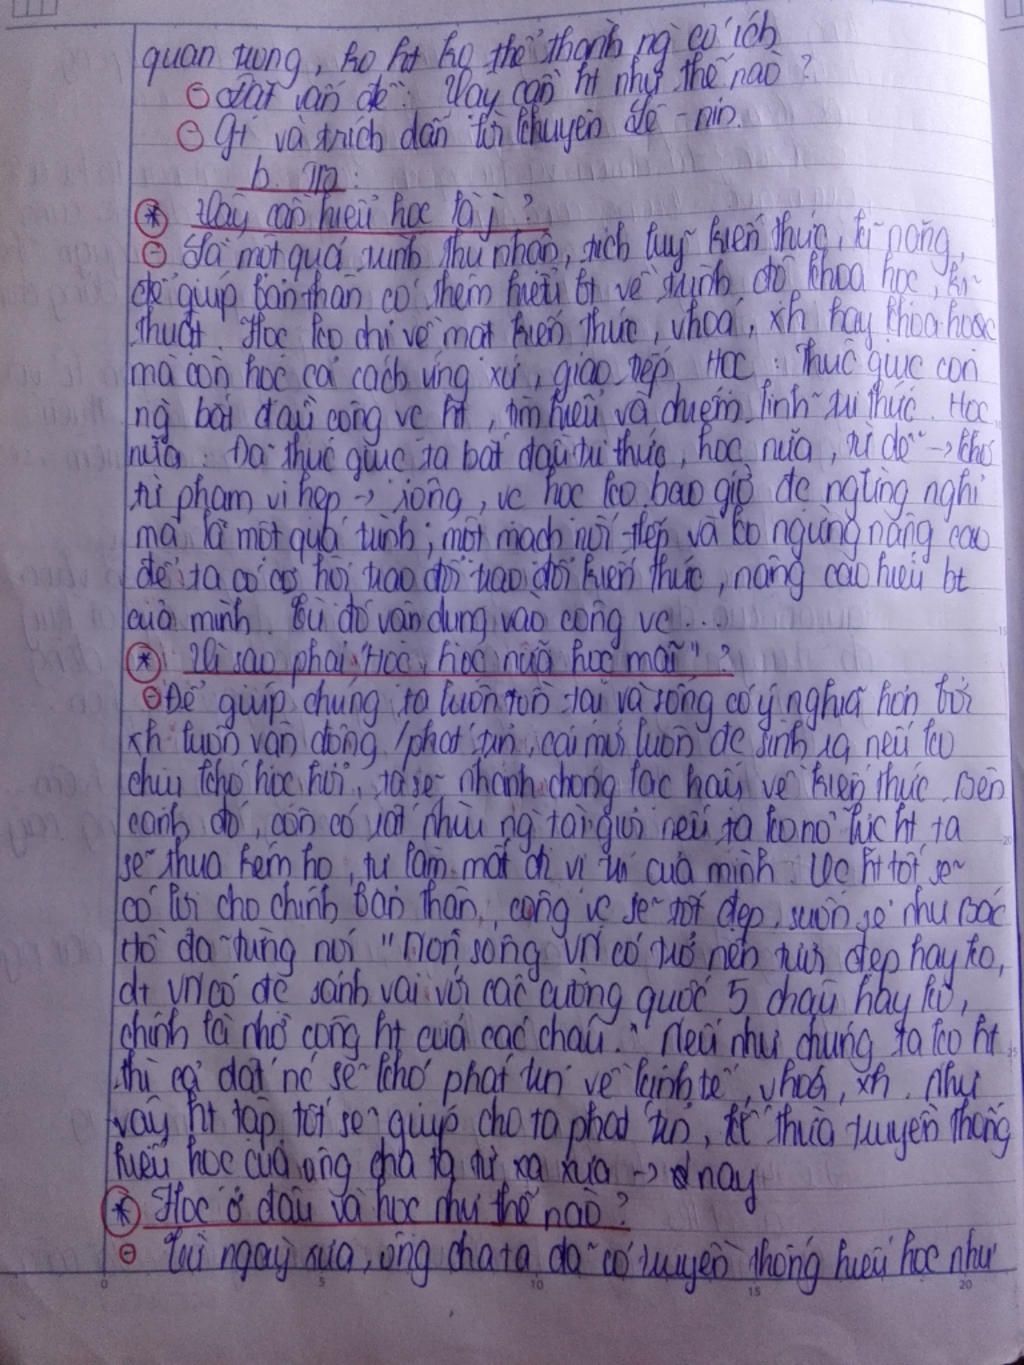 quan trọng, ko ht ko thể thành ng có ích
⊖ Đặt vấn đề: Vậy cần ht như thế nào?
⊖ Gt và trích dẫn lời khuyên Lê-nin.
b. TB:
* Vậy cần hiểu học là j?
⊖ Là một quá trình thu nhận, tích luỹ kiến thức, kĩ năng,
để giúp bản thân có thêm hiểu bt về trình độ khoa học, kĩ
thuật. Học ko chỉ về mặt kiến thức, vhoá, xh hay khoa học
mà còn học cả cách ứng xử, giao tiếp. Học: Thúc giục con
ng bắt đầu công vc ht, tìm hiểu và chiếm lĩnh tri thức. Học
nữa: Đã thúc giục ta bắt đầu tri thức, học nữa, từ dễ → khó
từ phạm vi hẹp → rộng, vc học ko bao giờ đc ngừng nghỉ
mà là một quá trình; một mạch nối tiếp và ko ngừng nâng cao
để ta có cơ hội trao đổi trao đổi kiến thức, nâng cao hiểu bt
của mình. Từ đó vận dụng vào công vc...
* Vì sao phải "Học, học nữa học mãi"?
⊖ Để giúp chúng ta luôn tồn tại và sống có ý nghĩa hơn bởi
xh luôn vận động / phát triển, cái mới luôn đc sinh ra nếu ko
chịu khó học hỏi, ta sẽ nhanh chóng lạc hậu về kiến thức. Bên
cạnh đó, còn có rất nhìu ng tài giỏi nếu ta ko nỗ lực ht ta
sẽ thua kém họ, tự làm mất đi vị trí của mình. Vc ht tốt sẽ
có lợi cho chính bản thân, công vc sẽ tốt đẹp, suôn sẻ như Bác
Hồ đã từng nói "Non sông VN có trở nên tươi đẹp hay ko,
dt VN có đc sánh vai với các cường quốc 5 châu hay ko,
chính là nhờ công ht của các cháu." Nếu như chúng ta ko ht
thì cả đất nc sẽ khó phát triển về kinh tế, vhoá, xh. Như
vậy ht tập tốt sẽ giúp cho ta phát triển, kế thừa truyền thống
hiếu học của ông cha ta từ xa xưa → nay
* Học ở đâu và học như thế nào?
⊖ Từ ngày xưa, ông cha ta đã có truyền thống hiếu học như